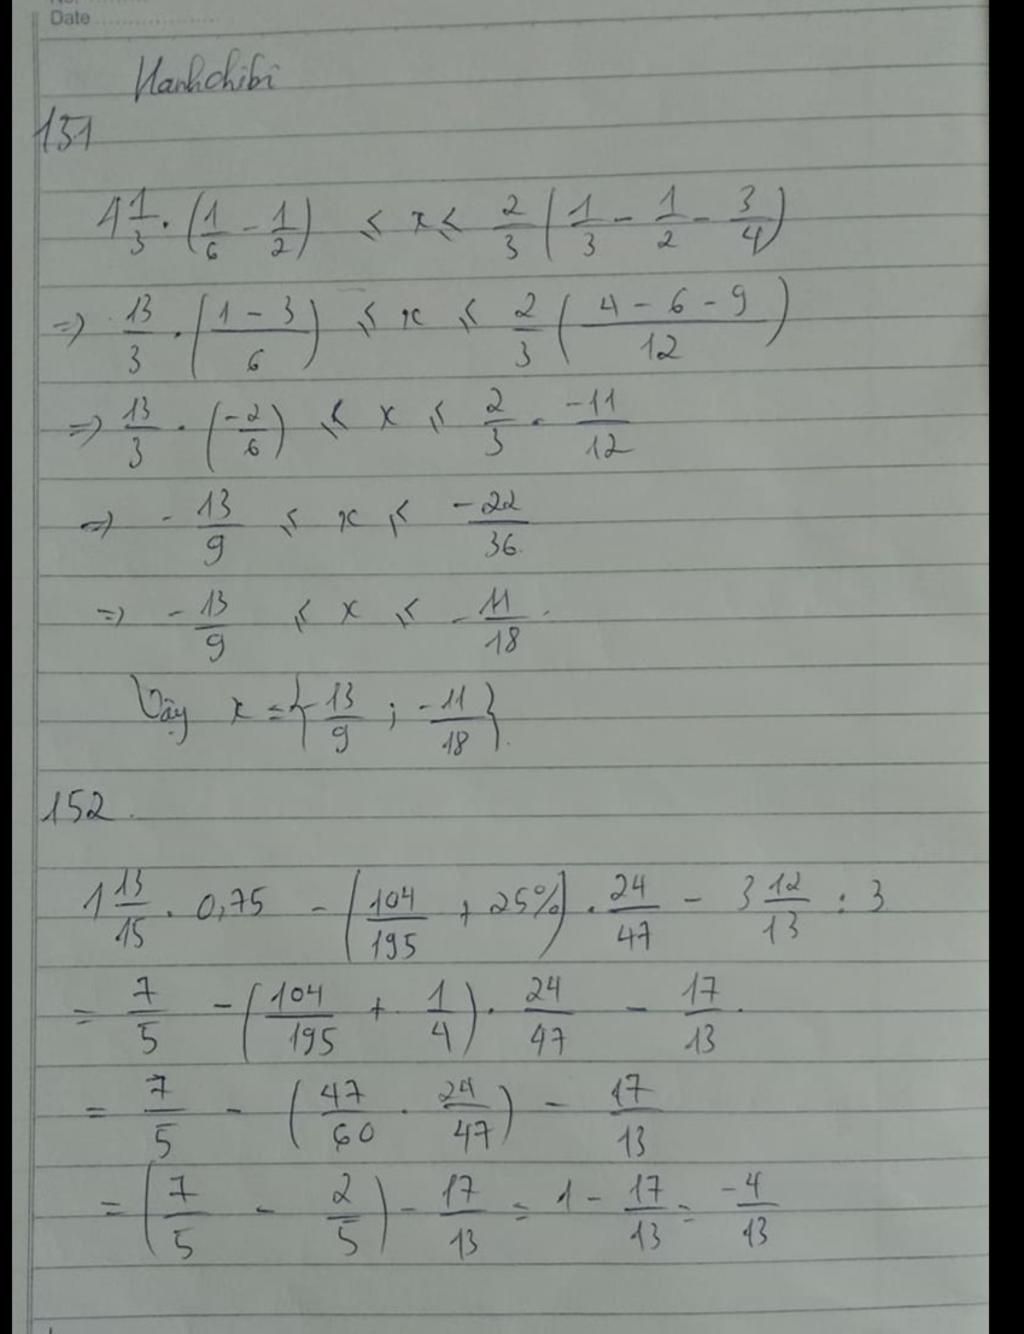 No.
Date
Hanhchibi
151
4 1/3 . (1/6 - 1/2) ≤ x ≤ 2/3 (1/3 - 1/2 - 3/4)
=> 13/3 . ((1 - 3)/6) ≤ x ≤ 2/3 ((4 - 6 - 9)/12)
=> 13/3 . (-2/6) ≤ x ≤ 2/3 . -11/12
=> -13/9 ≤ x ≤ -22/36
=> -13/9 ≤ x ≤ -11/18.
Vậy x = {-13/9 ; -11/18}.
152.
1 13/15 . 0,75 - (104/195 + 25%) . 24/47 - 3 12/13 : 3
= 7/5 - (104/195 + 1/4) . 24/47 - 17/13.
= 7/5 - (47/60 . 24/47) - 17/13
= (7/5 - 2/5) - 17/13 = 1 - 17/13 = -4/13